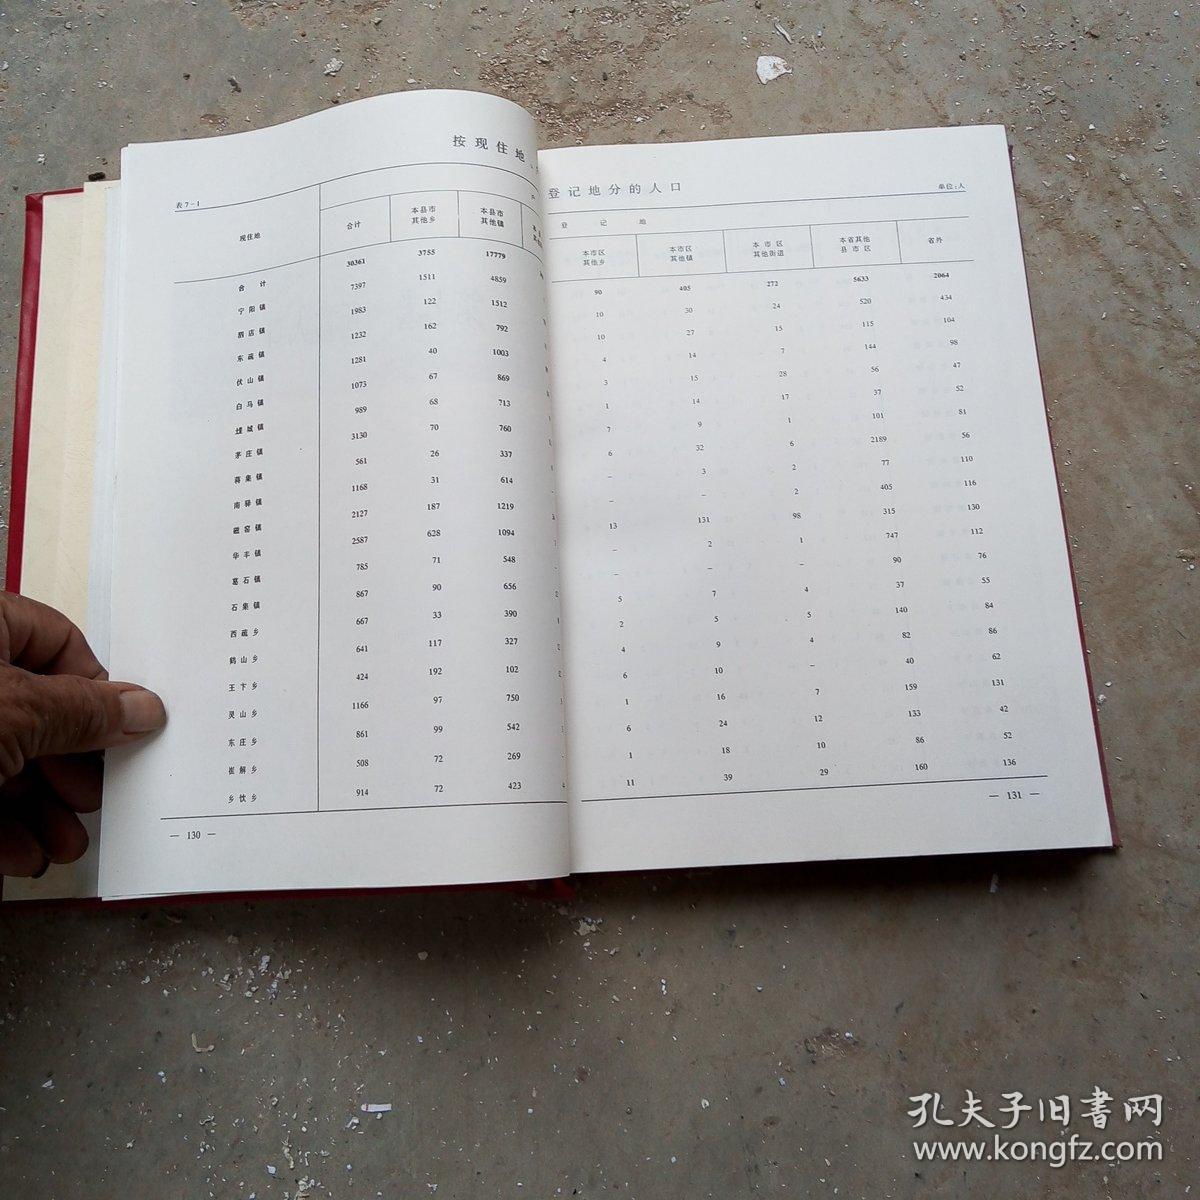 按现住地
表7-1
现住地 合计 本县市其他乡 本县市其他镇
合计 30361 3755 17779
宁阳镇 7397 1511 4859
泗店镇 1983 122 1512
东疏镇 1232 162 792
伏山镇 1281 40 1003
白马镇 1073 67 869
堽城镇 989 68 713
茅庄镇 3130 70 760
蒋集镇 561 26 337
南驿镇 1168 31 614
磁窑镇 2127 187 1219
华丰镇 2587 628 1094
葛石镇 785 71 548
石集镇 867 90 656
西疏乡 667 33 390
鹤山乡 641 117 327
王卞乡 424 192 102
灵山乡 1166 97 750
东庄乡 861 99 542
崔解乡 508 72 269
乡饮乡 914 72 423
— 130 —
登记地分的人口
单位:人
登记地
本市区其他乡 本市区其他镇 本市区其他街道 本省其他县市区 省外
90 405 272 5633 2064
10 30 24 520 434
10 27 15 115 104
4 14 7 144 98
3 15 28 56 47
1 14 17 37 52
7 9 1 101 81
6 32 6 2189 56
- 3 2 77 110
- - 2 405 116
13 131 98 315 130
- 2 1 747 112
- - - 90 76
5 7 4 37 55
2 5 5 140 84
4 9 4 82 86
6 10 - 40 62
1 16 7 159 131
6 24 12 133 42
1 18 10 86 52
11 39 29 160 136
— 131 —
孔夫子旧書网
www.kongfz.com